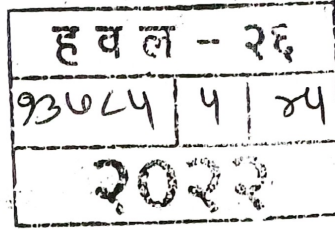 ह व ल - २६
१३७८५ | ५ | ४५
२०२२